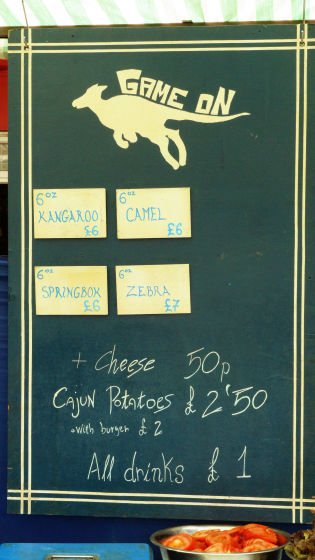 GAME ON
6oz
KANGAROO
£6
6oz
CAMEL
£6
6oz
SPRINGBOK
£6
6oz
ZEBRA
£7
+ cheese 50p
Cajun Potatoes £2'50
with burger £2
All drinks £1